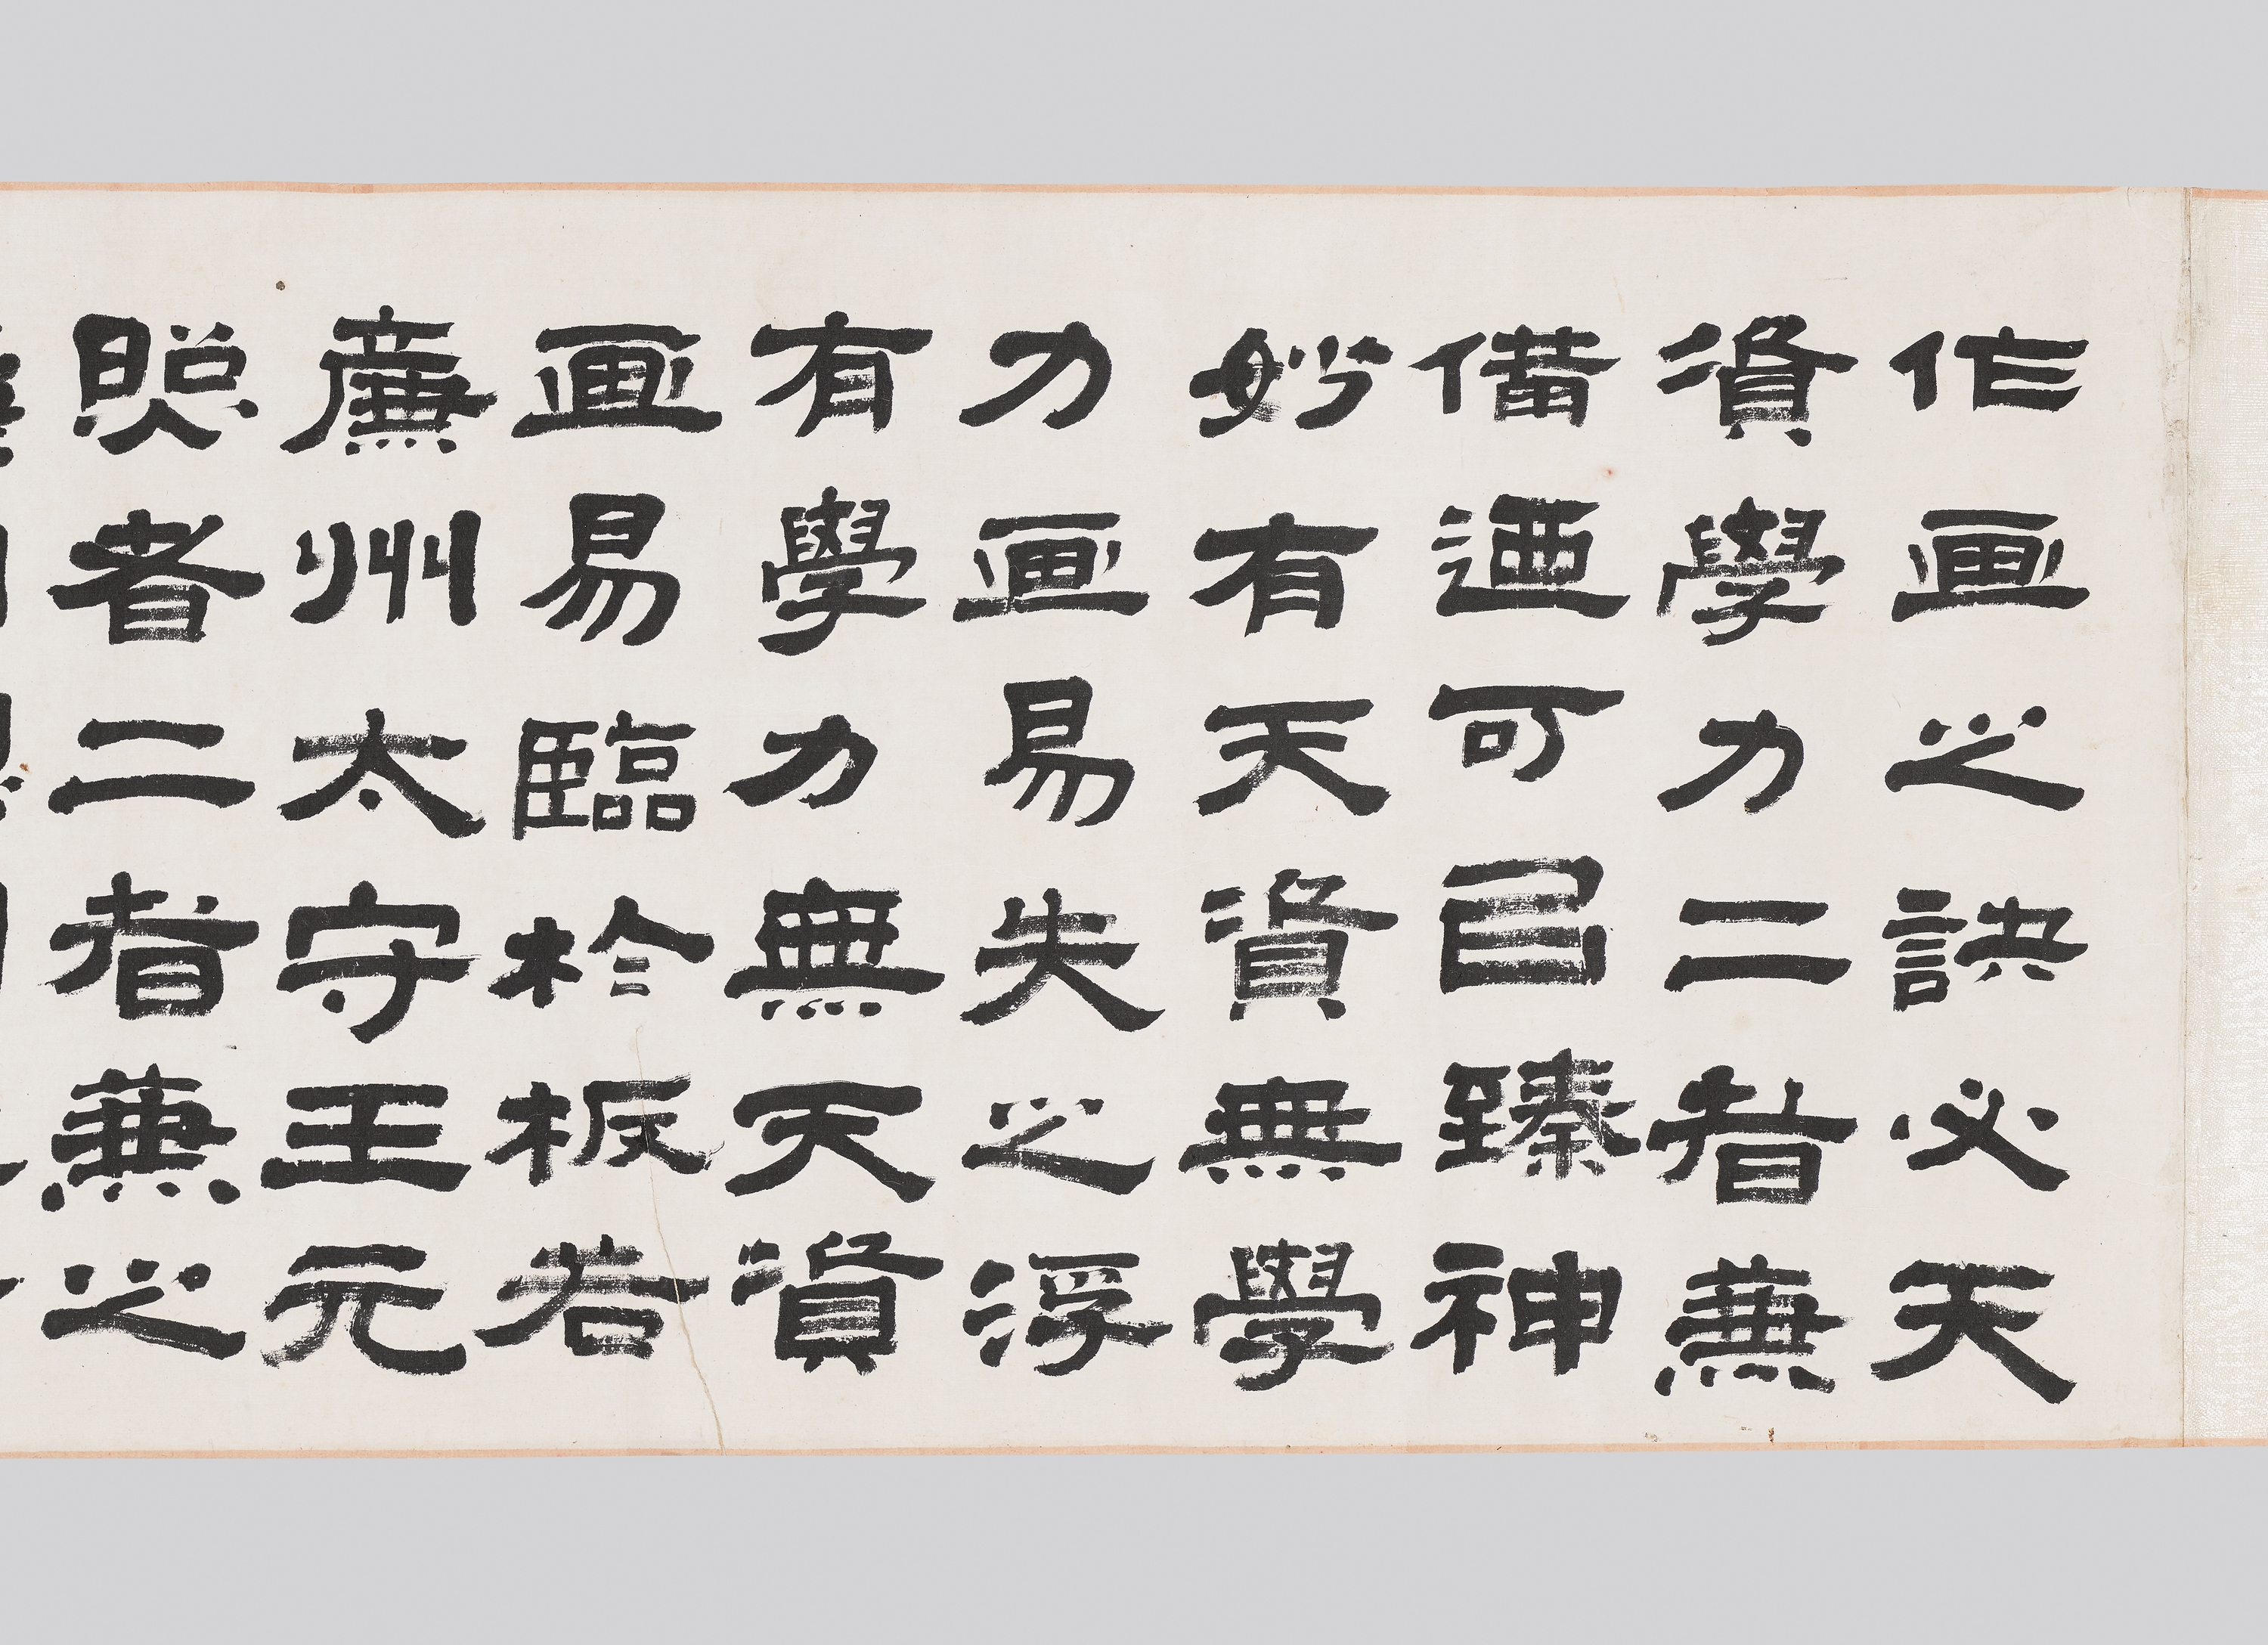 作画之訣必天
資學力二者兼
備迺可㠯臻神
妙有天資無學
力画易失之浮
有學力無天資
画易臨於板若
廉州太守王元
照者二者兼之